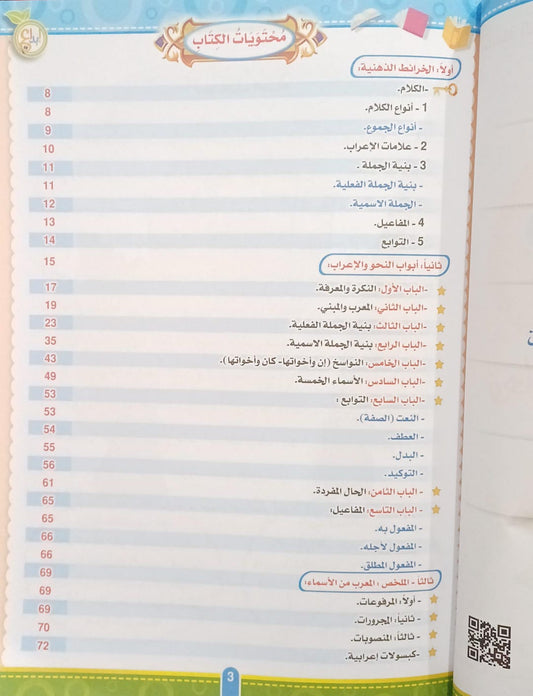 إبداع
محتويات الكتاب
أولاً: الخرائط الذهنية:
-الكلام. 8
1 - أنواع الكلام. 8
- أنواع الجموع. 9
2 - علامات الإعراب. 10
3 - بنية الجملة . 11
- بنية الجملة الفعلية. 11
- الجملة الاسمية. 12
4 - المفاعيل. 13
5 - التوابع 14
ثانياً: أبواب النحو والإعراب: 15
-الباب الأول: النكرة والمعرفة. 17
-الباب الثاني: المعرب والمبني. 19
-الباب الثالث: بنية الجملة الفعلية. 23
-الباب الرابع: بنية الجملة الاسمية. 35
-الباب الخامس: النواسخ (إن وأخواتها- كان وأخواتها). 43
-الباب السادس: الأسماء الخمسة. 49
-الباب السابع: التوابع : 53
- النعت (الصفة). 53
- العطف. 54
- البدل. 55
- التوكيد. 56
- الباب الثامن: الحال المفردة. 61
- الباب التاسع: المفاعيل: 65
- المفعول به. 65
- المفعول لأجله. 66
- المفعول المطلق. 66
ثالثاً - الملخص : المعرب من الأسماء: 69
- أولاً: المرفوعات. 69
- ثانياً: المجرورات. 69
- ثالثاً: المنصوبات. 70
-كبسولات إعرابية. 72
3